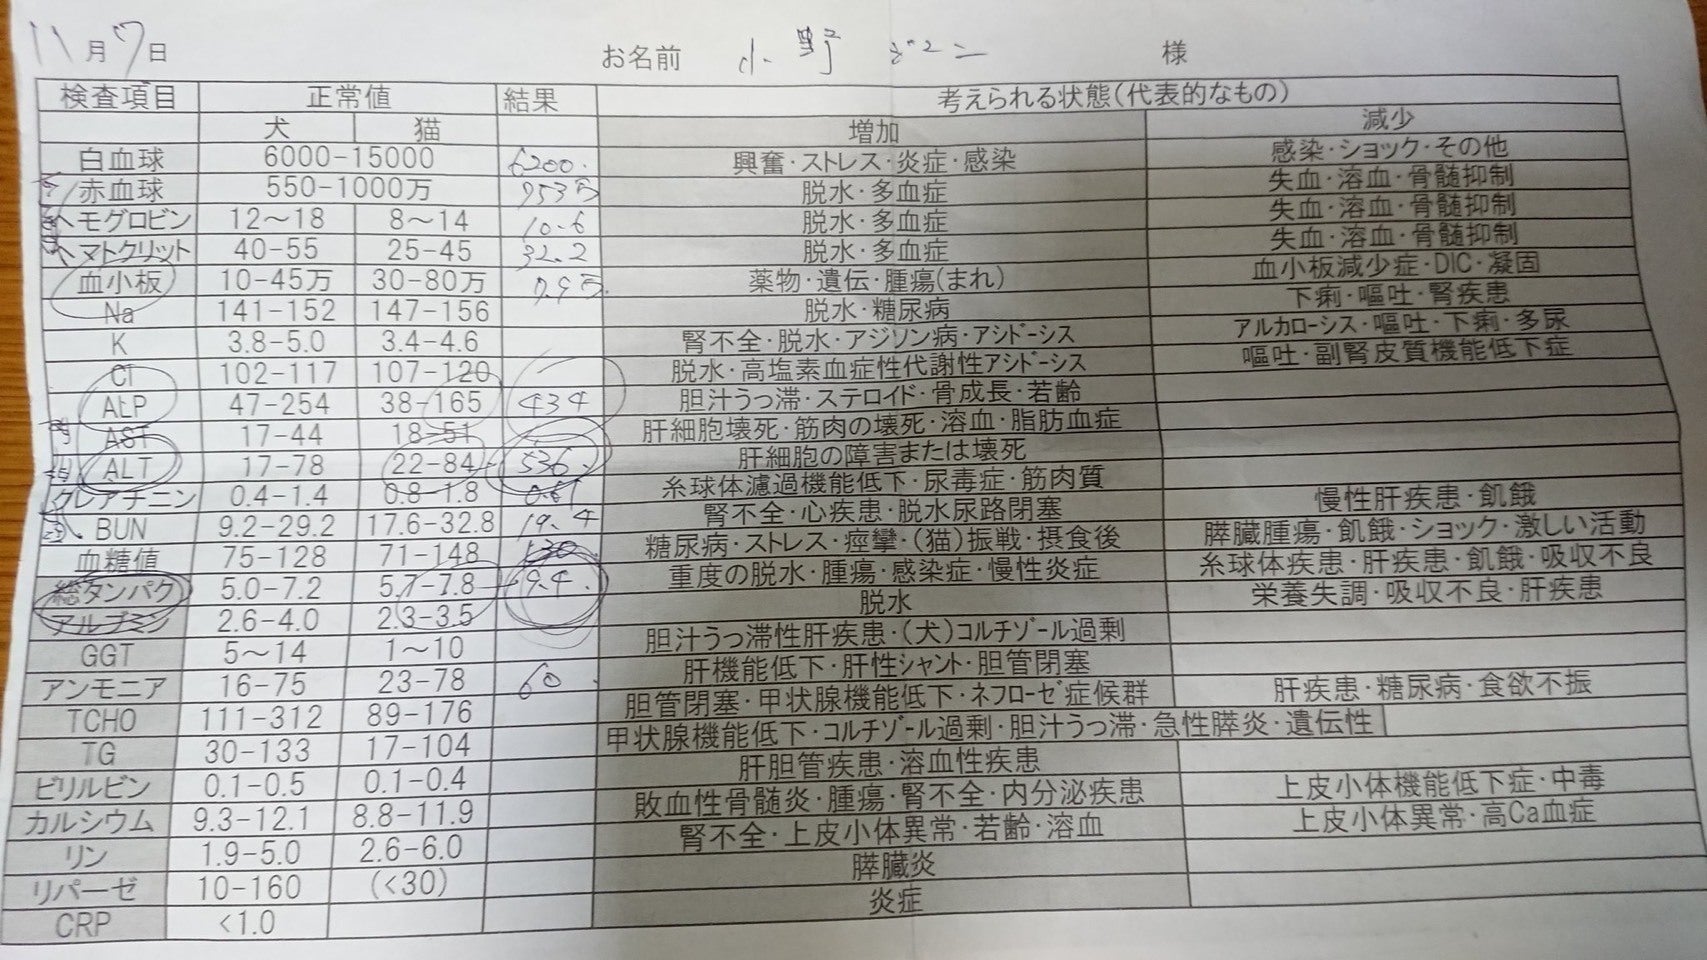 11月7日 お名前 小野 様
検査項目 正常値 結果 考えられる状態(代表的なもの)
犬 猫 増加 減少
白血球 6000-15000 6200. 興奮・ストレス・炎症・感染 感染・ショック・その他
赤血球 550-1000万 953万 脱水・多血症 失血・溶血・骨髄抑制
ヘモグロビン 12～18 8～14 10.6 脱水・多血症 失血・溶血・骨髄抑制
ヘマトクリット 40-55 25-45 32.2 脱水・多血症 失血・溶血・骨髄抑制
血小板 10-45万 30-80万 7.9万. 薬物・遺伝・腫瘍(まれ) 血小板減少症・DIC・凝固
Na 141-152 147-156 脱水・糖尿病 下痢・嘔吐・腎疾患
K 3.8-5.0 3.4-4.6 腎不全・脱水・アジソン病・アシドーシス アルカローシス・嘔吐・下痢・多尿
Cl 102-117 107-120 脱水・高塩素血症性代謝性アシドーシス 嘔吐・副腎皮質機能低下症
ALP 47-254 38-165 434 胆汁うっ滞・ステロイド・骨成長・若齢
AST 17-44 18-51 肝細胞壊死・筋肉の壊死・溶血・脂肪血症
ALT 17-78 22-84 536. 肝細胞の障害または壊死
クレアチニン 0.4-1.4 0.8-1.8 0.61 糸球体濾過機能低下・尿毒症・筋肉質
BUN 9.2-29.2 17.6-32.8 19.4 腎不全・心疾患・脱水尿路閉塞 慢性肝疾患・飢餓
血糖値 75-128 71-148 130 糖尿病・ストレス・痙攣・(猫)振戦・摂食後 膵臓腫瘍・飢餓・ショック・激しい活動
総タンパク 5.0-7.2 5.7-7.8 9.4. 重度の脱水・腫瘍・感染症・慢性炎症 糸球体疾患・肝疾患・飢餓・吸収不良
アルブミン 2.6-4.0 2.3-3.5 脱水 栄養失調・吸収不良・肝疾患
GGT 5～14 1～10 胆汁うっ滞性肝疾患・(犬)コルチゾール過剰
アンモニア 16-75 23-78 60. 肝機能低下・肝性シャント・胆管閉塞
TCHO 111-312 89-176 胆管閉塞・甲状腺機能低下・ネフローゼ症候群 肝疾患・糖尿病・食欲不振
TG 30-133 17-104 甲状腺機能低下・コルチゾール過剰・胆汁うっ滞・急性膵炎・遺伝性
ビリルビン 0.1-0.5 0.1-0.4 肝胆管疾患・溶血性疾患
カルシウム 9.3-12.1 8.8-11.9 敗血性骨髄炎・腫瘍・腎不全・内分泌疾患 上皮小体機能低下症・中毒
リン 1.9-5.0 2.6-6.0 腎不全・上皮小体異常・若齢・溶血 上皮小体異常・高Ca血症
リパーゼ 10-160 (<30) 膵臓炎
CRP <1.0 炎症